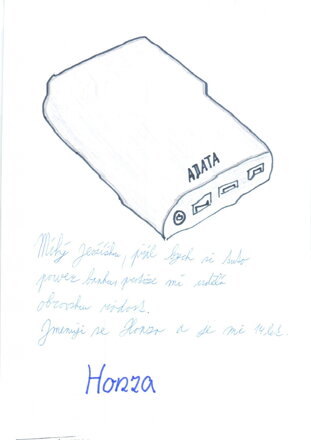 ADATA
Milý Ježíšku, přál bych si tuto
power banku protože mi udělá
obrovskou radost.
Jmenuji se Honza a je mi 14 let.
Honza